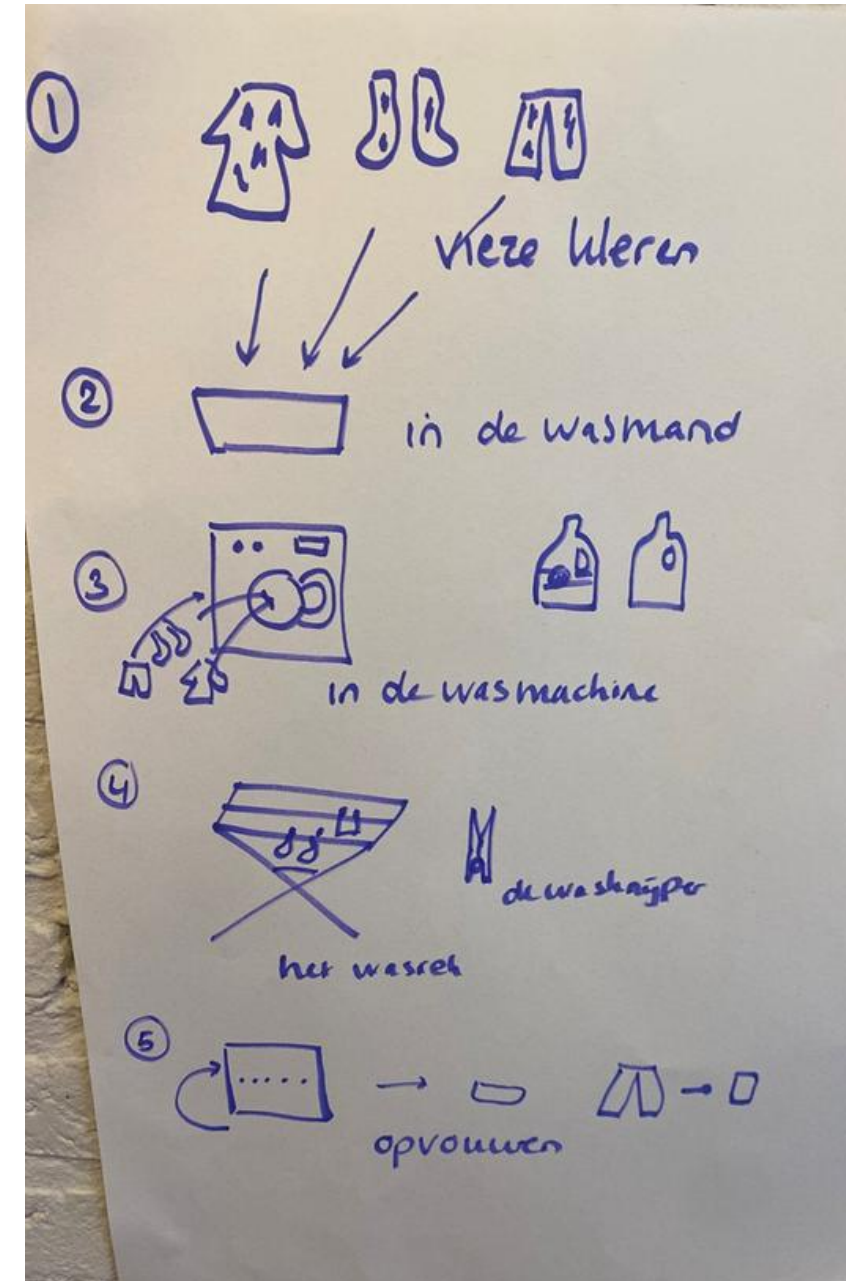 1
vieze kleren
2
in de wasmand
3
in de wasmachine
4
de wasknijper
het wasrek
5
opvouwen